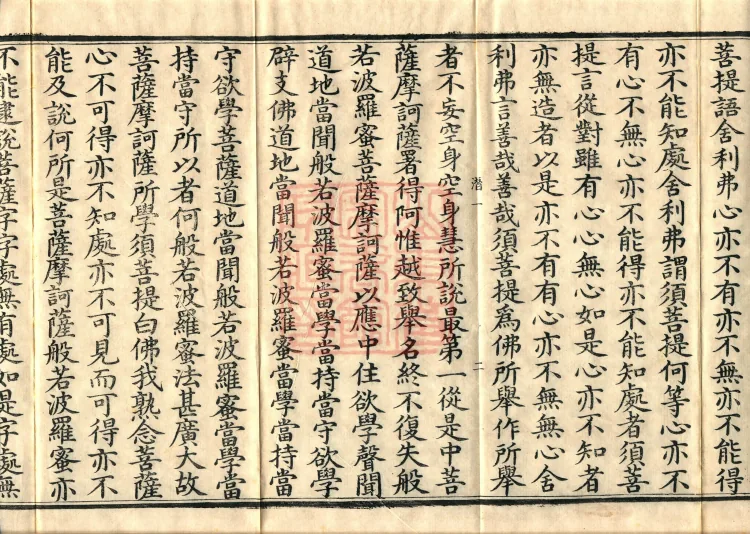 菩提語舍利弗心亦不有亦不無亦不能得
亦不能知處舍利弗謂須菩提何等心亦不
有心不無心亦不能得亦不能知處者須菩
提言從對雖有心心無心如是心亦不知者
亦無造者以是亦不有有心亦不無無心舍
利弗言善哉善哉須菩提為佛所舉作所舉
潛一 二
者不妄空身空身慧所說最第一從是中菩
薩摩訶薩署得阿惟越致舉名終不復失般
若波羅蜜菩薩摩訶薩以應中住欲學聲聞
道地當聞般若波羅蜜當學當持當守欲學
辟支佛道地當聞般若波羅蜜當學當持當
守欲學菩薩道地當聞般若波羅蜜當學當
持當守所以者何般若波羅蜜法甚廣大故
菩薩摩訶薩所學須菩提白佛我熟念菩薩
心不可得亦不知處亦不可見而可得亦不
能及說何所是菩薩摩訶薩般若波羅蜜亦
不能逮說菩薩字字處無有處如是字處無